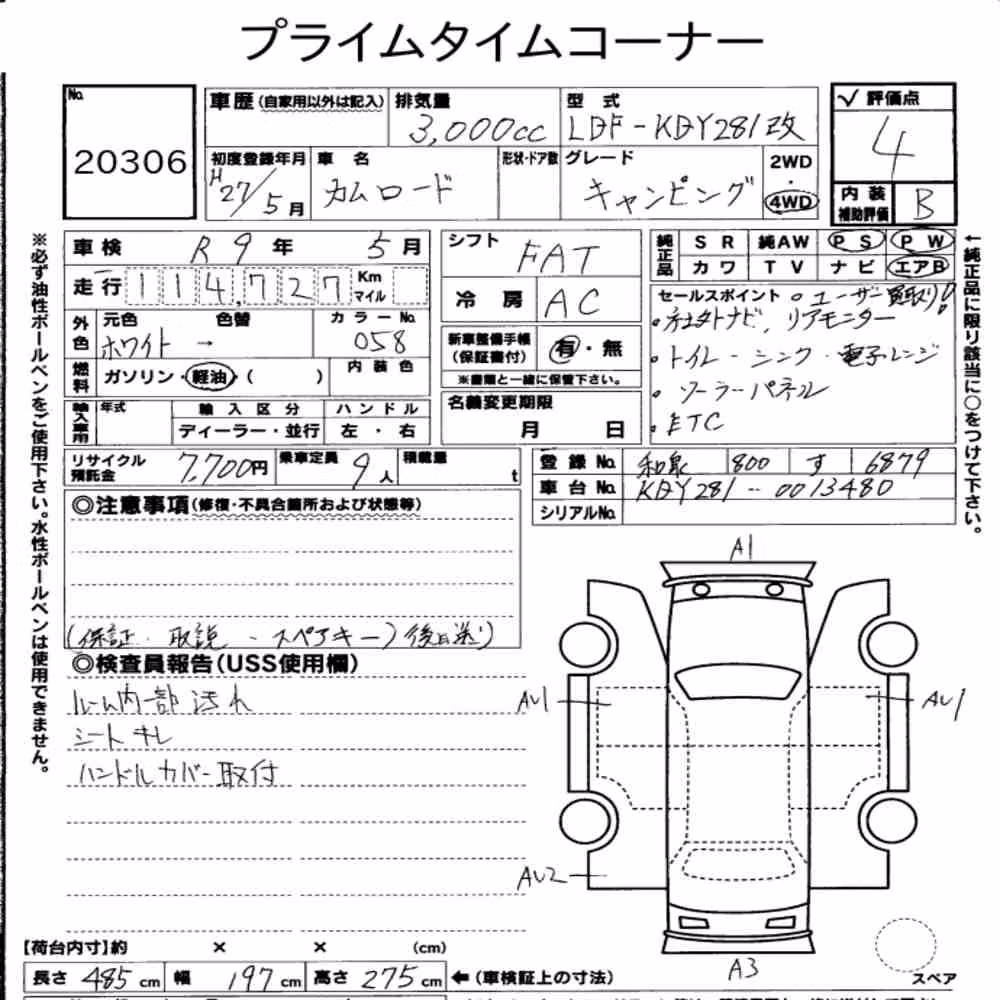 プライムタイムコーナー
No. 20306
車歴(自家用以外は記入) 排気量 3,000cc 型式 LDF-KDY281改
✓ 評価点 4
内装補助評価 B
初度登録年月 H27/5月 車名 カムロード 形状・ドア数 グレード キャンピング 2WD・4WD
車検 R9年 5月
走行 114,727 Km マイル
外色 元色 ホワイト → 色替 カラーNo. 058
燃料 ガソリン・軽油・( ) 内装色
輸入車用 年式 輸入区分 ディーラー・並行 ハンドル 左・右
シフト FAT
冷房 AC
新車整備手帳(保証書付) 有・無
※書類と一緒に保管下さい。
名義変更期限 月 日
純正品 SR 純AW PS PW
カワ TV ナビ エアB
セールスポイント 。ユーザー買取り!
・社外ナビ, リアモニター
・トイレ・シンク・電子レンジ
・ソーラーパネル
・ETC
リサイクル預託金 7,700円 乗車定員 9人 積載量 t
登録No. 和泉 800 す 6879
車台No. KDY281-0013480
シリアルNo.
◎注意事項(修復・不具合箇所および状態等)
(保証・取説・スペアキー)後日送)
◎検査員報告(USS使用欄)
ルーム内部汚れ
シートキレ
ハンドルカバー取付
A1
AU1
AU1
AU2
A3
スペア
【荷台内寸】約 × × (cm)
長さ 485cm 幅 197cm 高さ 275cm ←(車検証上の寸法)
※必ず油性ボールペンをご使用下さい。水性ボールペンは使用できません。
←純正品に限り該当に○をつけて下さい。